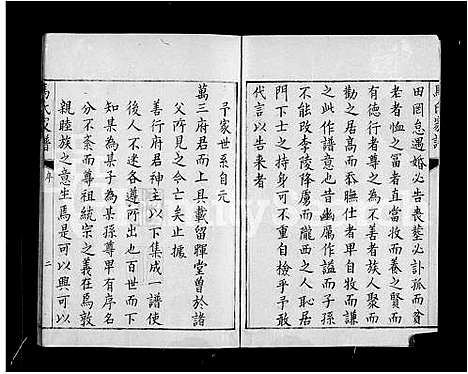 馬氏家譜
田罔怠遇婚必告喪塟必訃孤而貧
老者恤之富者直當牧而養之賢而
有德行者尊之為不善者族人聚而
勸之居高而仕者卑自牧而謙
此作譜意也昔幽厲作謚而子孫
不能改李陵降虜而隴西之人恥居
門下士之持身可不重自檢乎予敢
代言以告来者
予家世系自元
萬三府君而上具載留輝堂曽於諸
父所見之今亡矣止據
善行府君神主以下集成一譜使
後人不迷各遵所出也百世而下
知某為某子某孫尊卑有序名
分不紊而尊祖統宗之義在焉敦
親睦族之意生焉是可以興可以
馬氏家譜
序
二